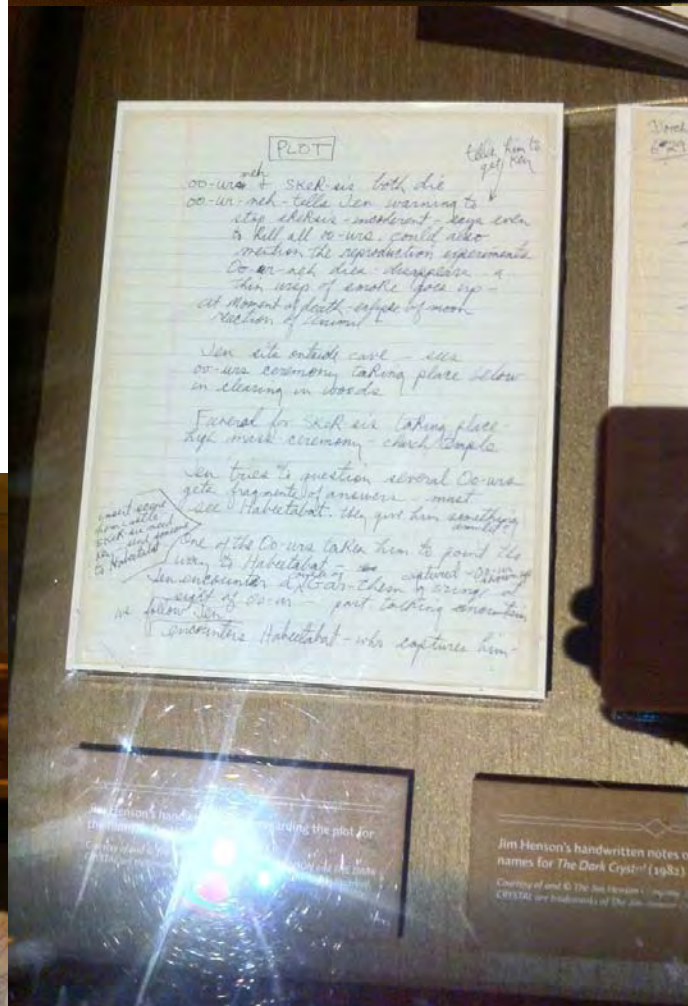 PLOT
tells him to
get Ken
neh
oo-urs & SKeR-sis both die
oo-ur-neh-tells Jen warning to
stop skeksis - incoherent - says even
to kill all oo-urs. could also
mention the reproduction experiments
Oo-ur-neh dies - disappears - a
thin wisp of smoke goes up -
at moment of death - eclipse of moon
reaction of
Jen sits outside cave - sees
oo-urs ceremony taking place below
in clearing in woods
Funeral for SKeR sis taking place -
high mass ceremony - church temple
Jen tries to question several Oo-urs
gets fragments of answers - must
see Habeetabat. then give him something
insert scene
SKeR-sis need
send someone
to Habeetabat
One of the Oo-urs takes him to point the
way to Habeetabat - captured
Jen encounters Gar-them
sight of oo-ur - part talking mountain
we follow Jen
encounters Habeetabat - who captures him -
Jim Henson's
regarding the plot for
Jim Henson's handwritten notes o
names for The Dark Crystal (1982)
Courtesy of and © The Jim Henson
CRYSTAL are trademarks of The Jim
March